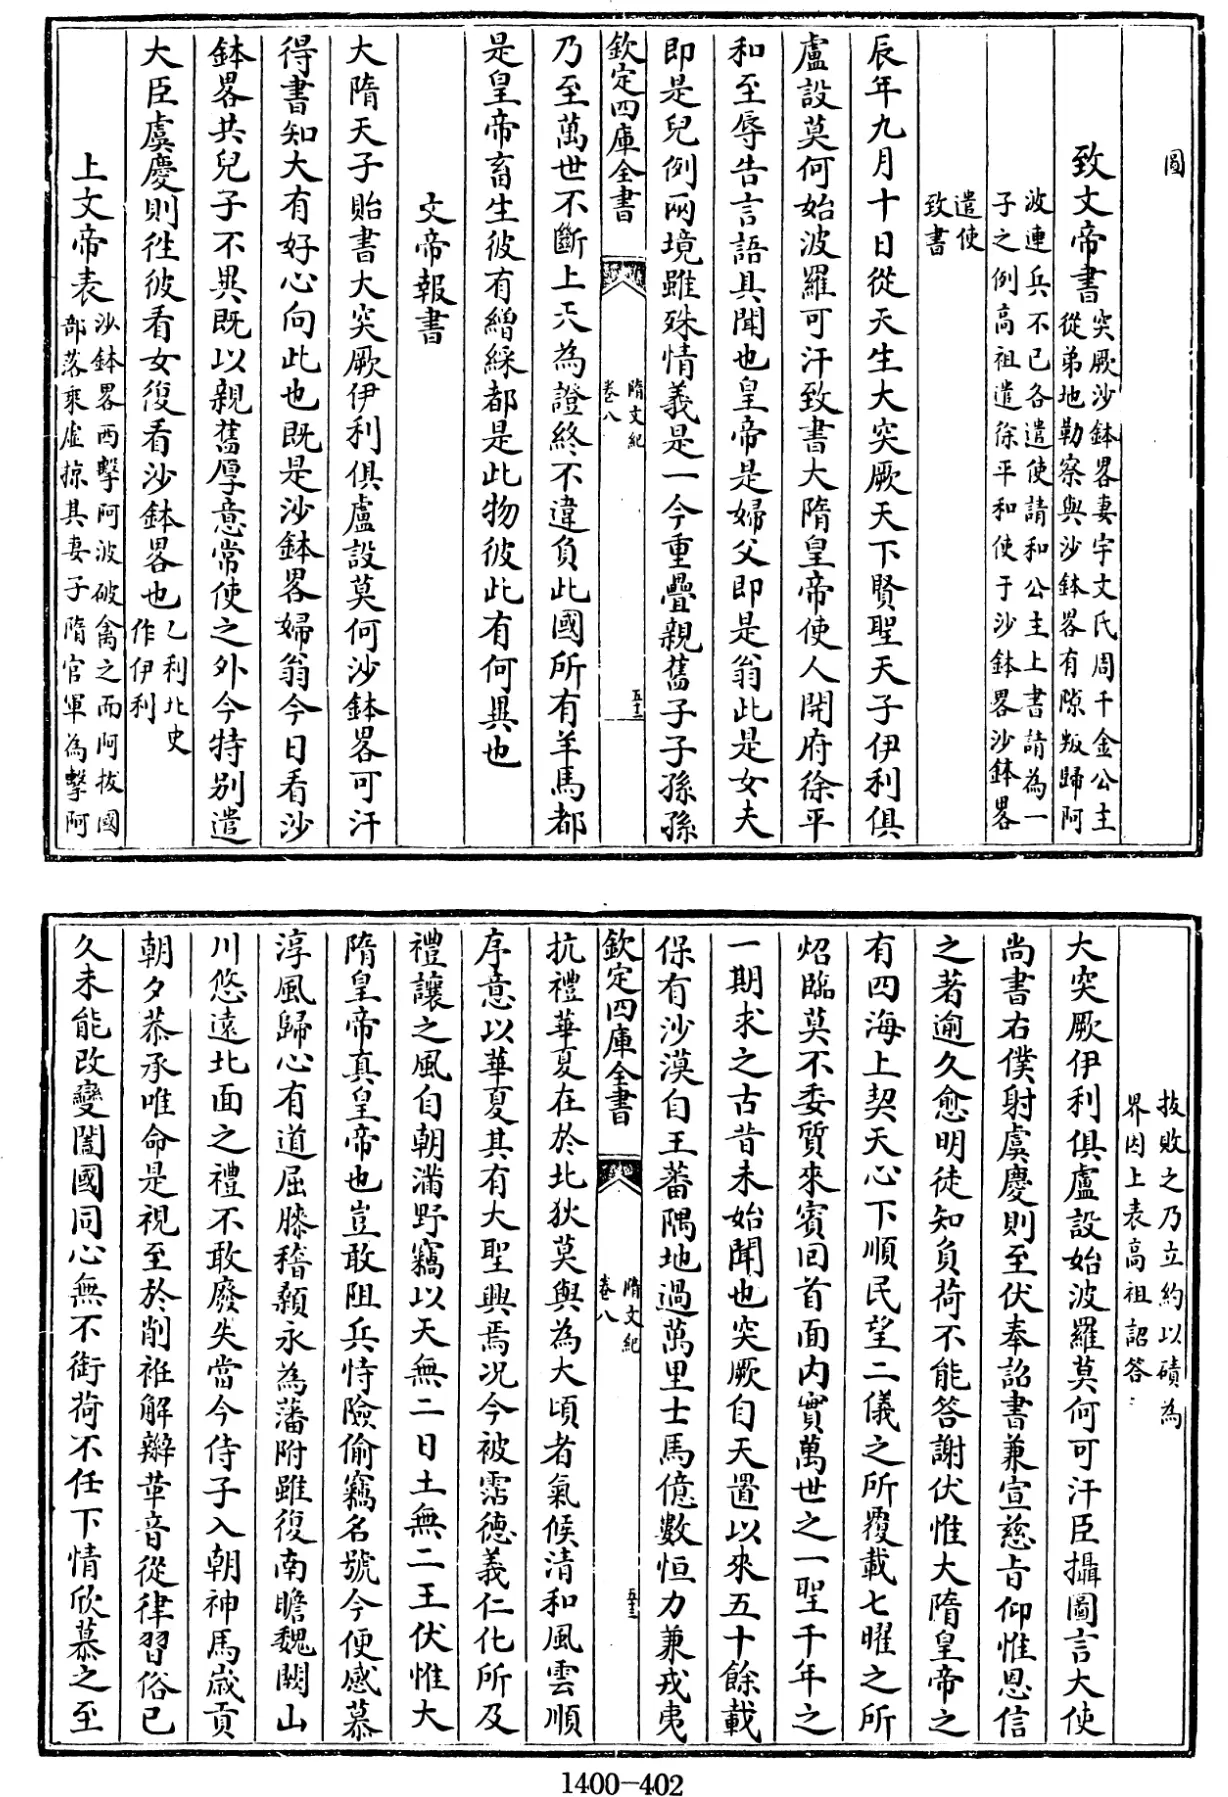 圖
致文帝書
突厥沙鉢畧妻宇文氏周千金公主
從弟地勤察與沙鉢畧有隙叛歸阿
波連兵不已各遣使請和公主上書請為一
子之例高祖遣徐平和使于沙鉢畧沙鉢畧
遣使
致書
辰年九月十日從天生大突厥天下賢聖天子伊利俱
盧設莫何始波羅可汗致書大隋皇帝使人開府徐平
和至辱告言語具聞也皇帝是婦父即是翁此是女夫
即是兒例兩境雖殊情義是一今重疊親舊子子孫孫
欽定四庫全書
隋文紀
卷八
五十二
乃至萬世不斷上天為證終不違負此國所有羊馬都
是皇帝畜生彼有繒綵都是此物彼此有何異也
文帝報書
大隋天子貽書大突厥伊利俱盧設莫何沙鉢畧可汗
得書知大有好心向此也既是沙鉢畧婦翁今日看沙
鉢畧共兒子不異既以親舊厚意常使之外今特别遣
大臣虞慶則徃彼看女復看沙鉢畧也
乙利北史
作伊利
上文帝表
沙鉢畧西擊阿波破禽之而阿拔國
部落乘虛掠其妻子隋官軍為擊阿
拔敗之乃立約以磧為
界因上表高祖詔答
大突厥伊利俱盧設始波羅莫何可汗臣攝圖言大使
尚書右僕射虞慶則至伏奉詔書兼宣慈旨仰惟恩信
之著逾久愈明徒知負荷不能答謝伏惟大隋皇帝之
有四海上契天心下順民望二儀之所覆載七曜之所
炤臨莫不委質來賓回首面内實萬世之一聖千年之
一期求之古昔未始聞也突厥自天置以來五十餘載
保有沙漠自王蕃隅地過萬里士馬億數恒力兼戎夷
欽定四庫全書
隋文紀
卷八
五十三
抗禮華夏在於北狄莫與為大頃者氣候清和風雲順
序意以華夏其有大聖興焉况今被霑德義仁化所及
禮讓之風自朝滿野竊以天無二日土無二王伏惟大
隋皇帝真皇帝也豈敢阻兵恃險偷竊名號今便感慕
淳風歸心有道屈膝稽顙永為藩附雖復南瞻魏闕山
川悠遠北面之禮不敢廢失當今侍子入朝神馬歲貢
朝夕恭承唯命是視至於削袵解辮革音從律習俗已
久未能改變闔國同心無不銜荷不任下情欣慕之至
1400-402